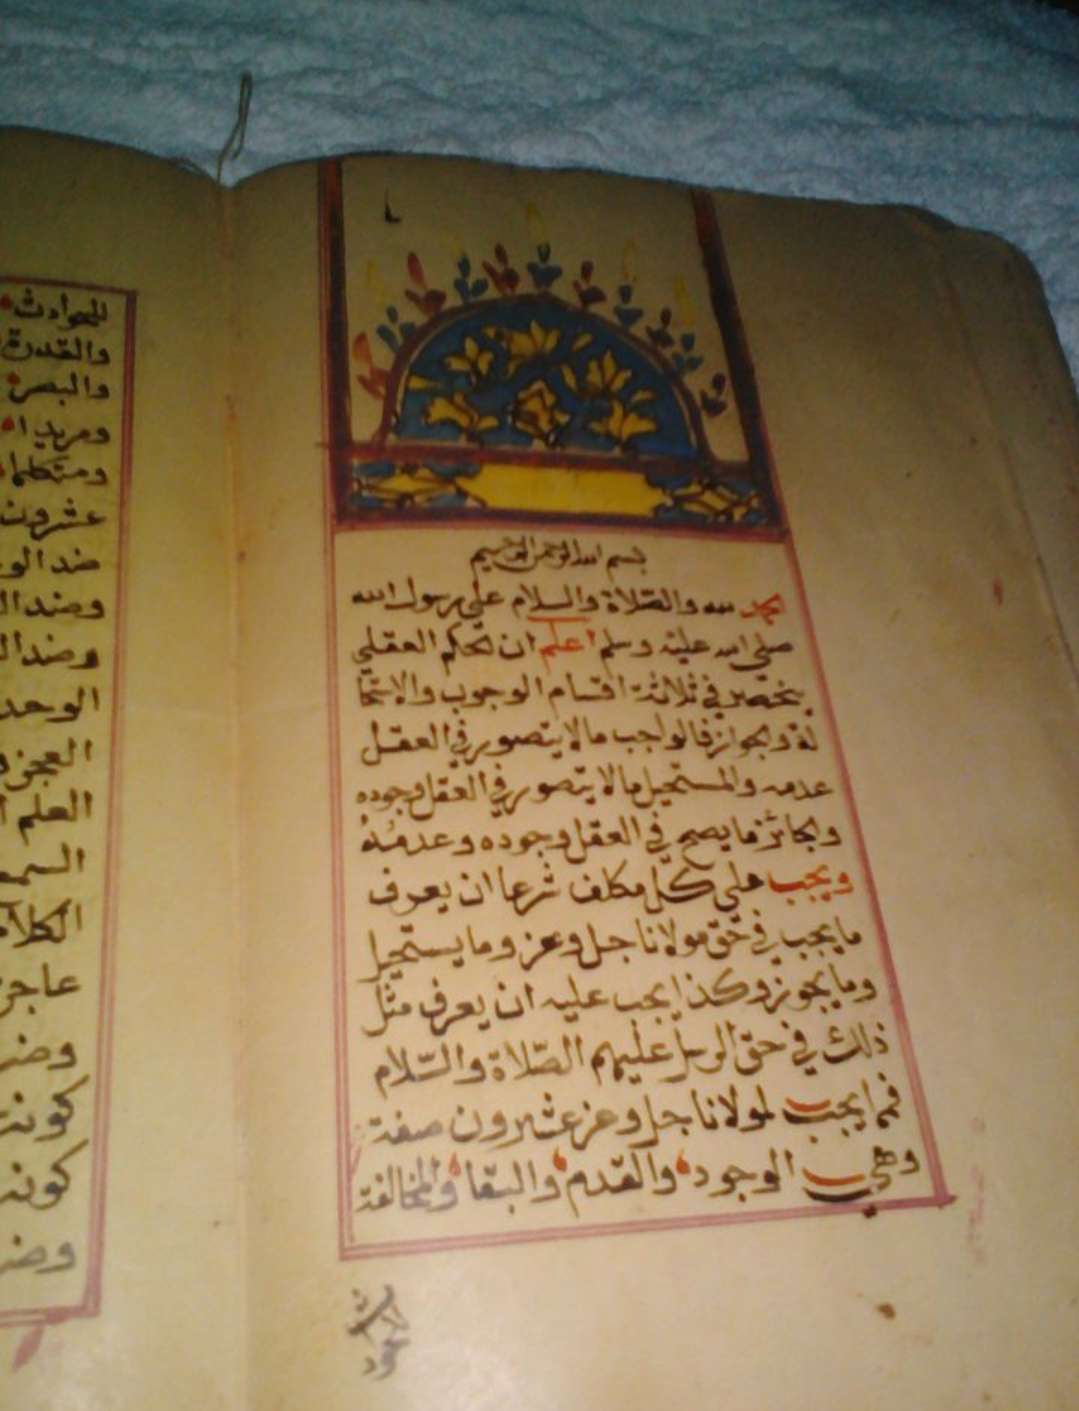 بسم الله الرحمن الرحيم
الحمد لله والصّلاة والسلام علي رسول الله
صلي الله عليه وسلم اعلم ان الحكم العقلي
ينحصر في ثلاثة اقسام الوجوب والاستحا
لة والجواز فالواجب مالا يتصور في العقل
عدمه والمستحيل مالا يتصور في العقل وجوده
والجائز ما يصح في العقل وجوده وعدمه
ويجب علي كلّ مكلف شرعا ان يعرف
ما يجب في حقّ مولانا جل وعز وما يستحيل
وما يجوز وكذا يجب عليه ان يعرف مثل
ذلك في حق الرسل عليهم الصّلاة والسّلام
فمما يجب لمولانا جل وعز عشرون صفة
وهي الوجود والقدم والبقا والمخالفة
للحوادث
والقدرة
والبصر
ومريدا
ومتكلما
عشرون
ضد الو
وضد ال
وضد ال
الوحد
العجز
العلم ا
السمع
الكلام
عاجز
وضد
كونه
كونه
وضد